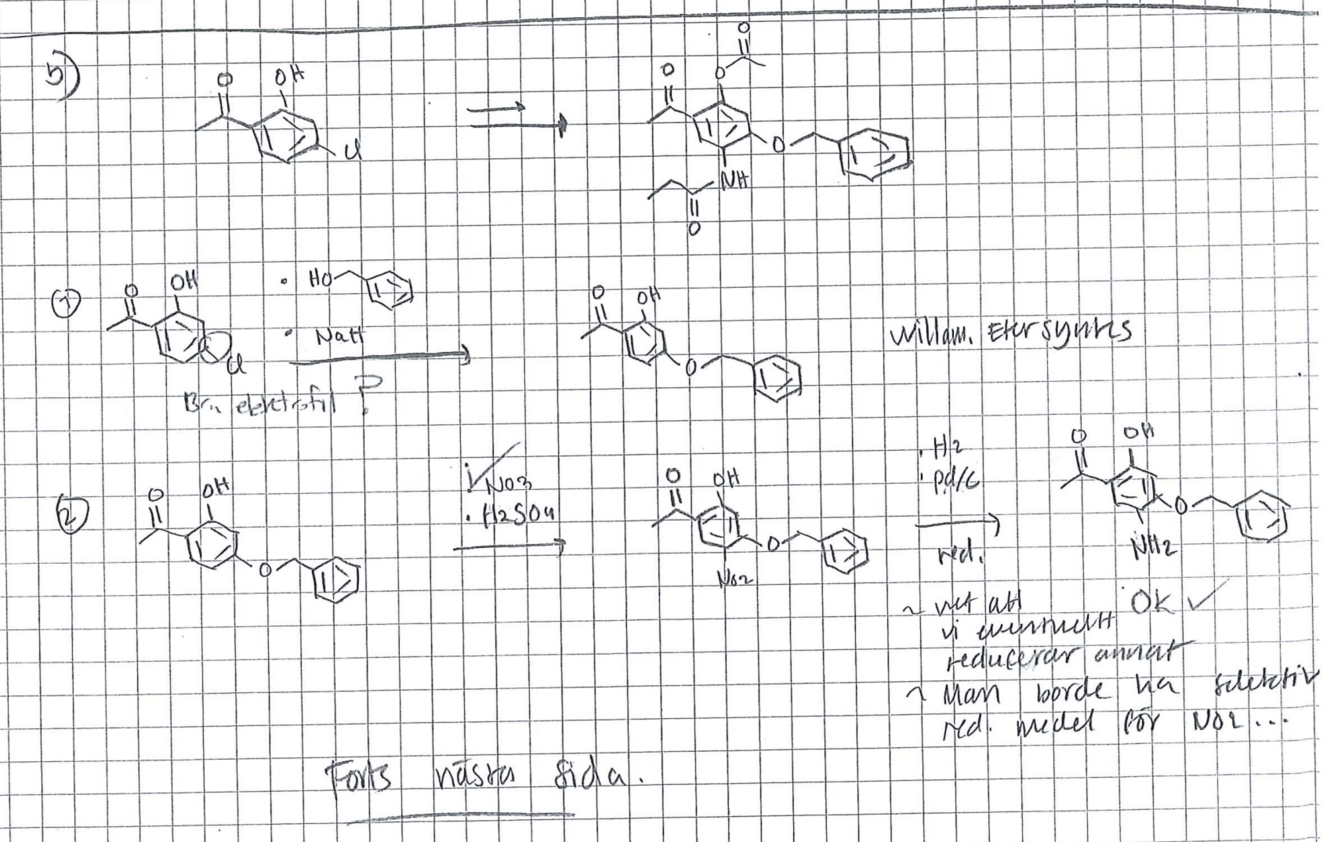 5)
O OH
Cl
O
O
O
O
NH
O
① O OH · HO
· NaH
Cl
O OH
O
Willam. Eter syntes
Bra elektrofil?
② O OH
O
NO3
· H2SO4
O OH
O
NO2
· H2
· Pd/C
red.
O OH
O
NH2
~ vet att OK ✓
vi eventuellt
reducerar annat
~ Man borde ha selektiv
red. medel för NO2...
Forts nästa sida.